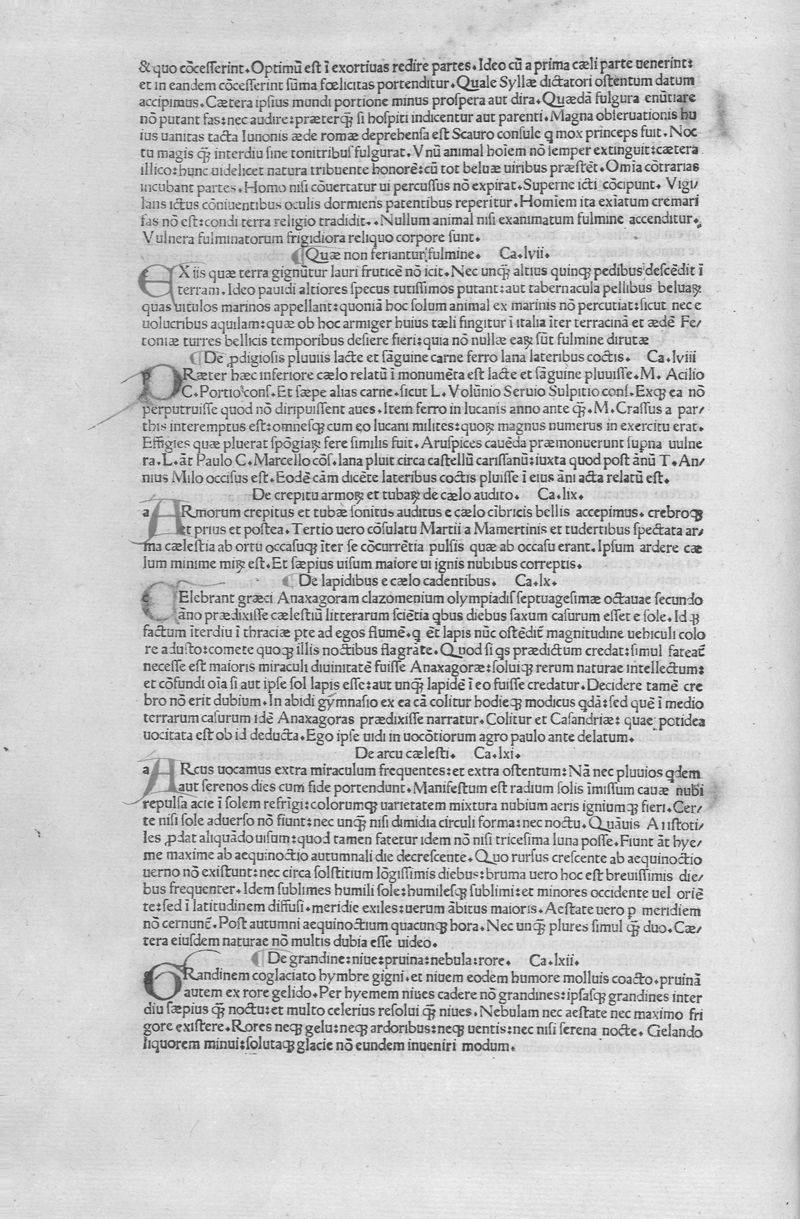 & quo cōceſſerint. Optimū eſt ī exortiuas redire partes. Ideo cū a prima cæli parte uenerint:
et in eandem cōceſſerint ſūma fœlicitas portenditur. Quale Syllæ dictatori oſtentum datum
accipimus. Cætera ipſius mundi portione minus proſpera aut dira. Quædā fulgura enūtiare
nō putant fas: nec audire: præterꝙ ſi hoſpiti indicentur aut parenti. Magna obſeruationis hu
ius uanitas tacta Iunonis æde romæ deprehenſa eſt Scauro conſule q mox princeps fuit. Noc
tu magis ꝙ interdiu ſine tonitribuſ fulgurat. Vnū animal hoīem nō ſemper extinguit: cætera
illico: hunc uidelicet natura tribuente honorē: cū tot beluæ uiribus præſtēt. Omīa cōtrarias
incubant partes. Homo niſi cōuertatur ui percuſſus nō expirat. Superne icti cōcipunt. Vigi/
lans ictus cōniuentibus oculis dormiens patentibus reperitur. Homīem ita exiatum cremari
fas nō eſt: condi terra religio tradidit.. Nullum animal niſi exanimatum fulmine accenditur.
Vulnera fulminatorum frigidiora reliquo corpore ſunt.
¶ Quæ non feriantur fulmine. Ca.lvii.
EX iis quæ terra gignūtur lauri fruticē nō icit. Nec unꝙ altius quinꝗ pedibus deſcēdit ī
terram. Ideo pauidi altiores ſpecus tutiſſimos putant: aut tabernacula pellibus beluaꝝ
quas uitulos marinos appellant: quoniā hoc ſolum animal ex marinis nō percutiat: ſicut nec e
uolucribus aquilam: quæ ob hoc armiger huius tæli fingitur ī italia īter terracinā et ædē Fe/
toniæ turres bellicis temporibus deſiere fieri: quia nō nullæ eaꝝ ſūt fulmine dirutæ
¶ De ꝓdigioſis pluuiis lacte et ſāguine carne ferro lana lateribus coctis. Ca.lviii
PRæter hæc inferiore cælo relatū ī monumēta eſt lacte et ſāguine pluuiſſe. M. Acilio
C. Portio conſ. Et ſæpe alias carne. ſicut L. Volūnio Seruio Sulpitio conſ. Exꝗ ea nō
perputruiſſe quod nō diripuiſſent aues. Item ferro in lucanis anno ante ꝙ. M. Craſſus a par/
this interemptus eſt: omneſꝗ cum eo lucani milites: quoꝝ magnus numerus in exercitu erat.
Effigies quæ pluerat ſpōgiaꝝ fere ſimilis fuit. Aruſpices cauēda præmonuerunt ſupna uulne
ra. L. āt Paulo C. Marcello cōſ. lana pluit circa caſtellū cariſſanū: iuxta quod poſt ānū T. An/
nius Milo occiſus eſt. Eodē cām dicēte lateribus coctis pluiſſe ī eius āni acta relatū eſt.
De crepitu armoꝝ et tubaꝝ de cælo audito. Ca.lix.
a ARmorum crepitus et tubæ ſonitus auditus e cælo cībricis bellis accepimus. crebroꝗ
et prius et poſtea. Tertio uero cōſulatu Martii a Mamertinis et tudertibus ſpectata ar/
ma cæleſtia ab ortu occaſuꝗ īter ſe cōcurrētia pulſis quæ ab occaſu erant. Ipſum ardere cæ
lum minime miꝝ eſt. Et ſæpius uiſum maiore ui ignis nubibus correptis.
¶ De lapidibus e cælo cadentibus. Ca.lx.
CElebrant græci Anaxagoram clazomenium olympiadiſ ſeptuageſimæ octauae ſecundo
āno prædixiſſe cæleſtiū litterarum ſciētia qbus diebus ſaxum caſurum eſſet e ſole. Idꝗ
factum īterdiu ī thraciæ pte ad egos flumē. q ēt lapis nūc oſtēdiť magnitudine uehiculi colo
re aduſto: comete quoꝗ illis noctibus flagrāte. Quod ſi qs prædictum credat: ſimul fateať
neceſſe eſt maioris miraculi diuinitatē fuiſſe Anaxagoræ: ſoluiꝗ rerum naturae intellectum:
et cōfundi oīa ſi aut ipſe ſol lapis eſſe: aut unꝙ lapidē ī eo fuiſſe credatur. Decidere tamē cre
bro nō erit dubium. In abidi gymnaſio ex ea cā colitur hodieꝗ modicus qdā: ſed quē ī medio
terrarum caſurum idē Anaxagoras prædixiſſe narratur. Colitur et Caſandriæ: quae potidea
uocitata eſt ob id deducta. Ego ipſe uidi in uocōtiorum agro paulo ante delatum.
De arcu cæleſti. Ca.lxi.
a ARcus uocamus extra miraculum frequentes: et extra oſtentum: Nā nec pluuios qdem
aut ſerenos dies cum fide portendunt. Manifeſtum eſt radium ſolis īmiſſum cauæ nubi
repulſa acie ī ſolem refrīgi: colorumꝗ uarietatem mixtura nubium aeris igniumꝗ fieri. Cer/
te niſi ſole aduerſo nō fiunt: nec unꝙ niſi dimidia circuli forma: nec noctu. Quāuis Ariſtoti/
les ꝓdat aliquādo uiſum: quod tamen fatetur idem nō niſi triceſima luna poſſe. Fiunt āt hye/
me maxime ab aequinoctio autumnali die decreſcente. Quo rurſus creſcente ab aequinoctio
uerno nō exiſtunt: nec circa ſolſtitium lōgiſſimis diebus: bruma uero hoc eſt breuiſſimis die/
bus frequenter. Idem ſublimes humili ſole: humileſꝗ ſublimi: et minores occidente uel oriē
te: ſed ī latitudinem diffuſi. meridie exiles: uerum ābitus maioris. Aeſtate uero p meridiem
nō cernunť. Poſt autumni aequinoctium quacunꝗ hora. Nec unꝙ plures ſimul ꝙ duo. Cæ/
tera eiuſdem naturae nō multis dubia eſſe uideo.
¶ De grandine: niue: pruina: nebula: rore. Ca.lxii.
GRandinem coglaciato hymbre gigni. et niuem eodem humore molluis coacto. pruinā
autem ex rore gelido. Per hyemem niues cadere nō grandines: ipſaſꝗ grandines inter
diu ſæpius ꝙ noctu: et multo celerius reſolui ꝙ niues. Nebulam nec aeſtate nec maximo fri
gore exiſtere. Rores neꝗ gelu: neꝗ ardoribus: neꝗ uentis: nec niſi ſerena nocte. Gelando
liquorem minui: ſolutaꝗ glacie nō eundem inueniri modum.